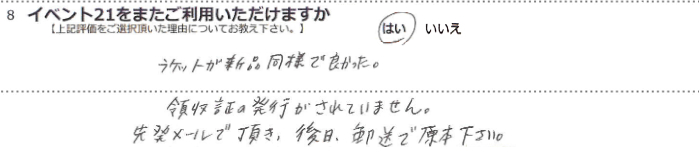 8 イベント21をまたご利用いただけますか
【上記評価をご選択頂いた理由についてお教え下さい。】
はい いいえ
ラケットが新品同様で良かった。
領収証の発行がされていません。
先発メールで頂き、後日、郵送で原本下さい。